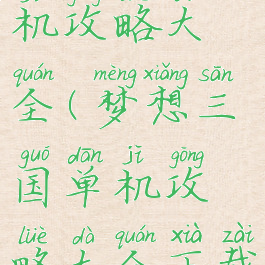 机攻略大
quán mèng xiǎng sān
全(梦想三
guó dān jī gōng
国单机攻
lüè dà quán xià zài
略大全下载